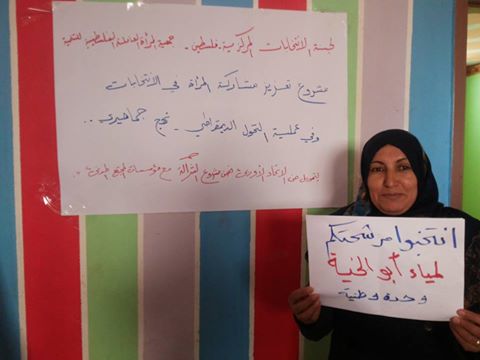 لجنة الانتخابات المركزية - فلسطين - جمعية المرأة العاملة الفلسطينية للتنمية
مشروع تعزيز مشاركة المرأة في الانتخابات
وفي عملية التحول الديمقراطي - نهج جماهيري ..
بتمويل من الاتحاد الأوروبي ضمن مشروع الشراكة مع مؤسسات المجتمع المدني - .
انتخبوا مرشحتكم
لمياء أبو الخية
وحدة وطنية